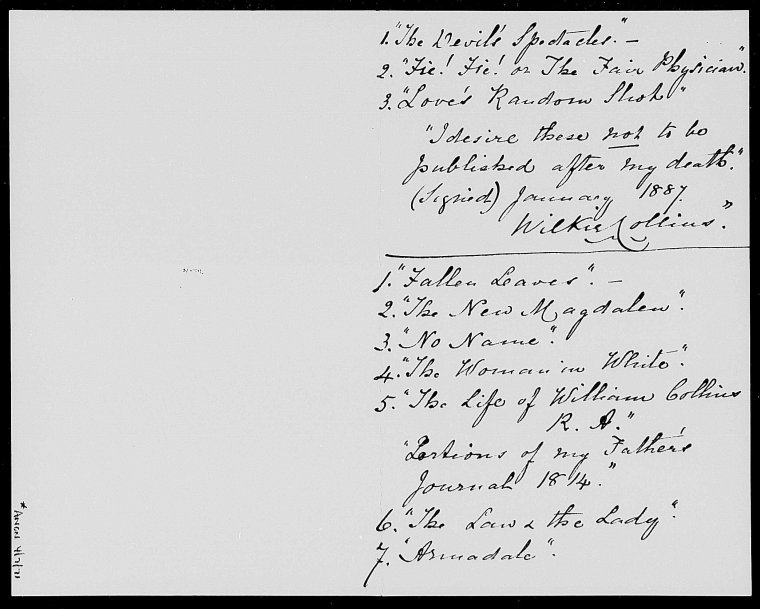 1. "The Devil's Spectacles." –
2. "Fie! Fie! or The Fair Physician".
3. "Love's Random Shot"
"I desire these not to be
published after my death."
(Signed) January 1887.
Wilkie Collins."
1. "Fallen Leaves". –
2. "The New Magdalen".
3. "No Name".
4. "The Woman in White".
5. "The Life of William Collins
R. A."
"Portions of my Father's
Journal 1814."
6. "The Law & the Lady".
7. "Armadale".